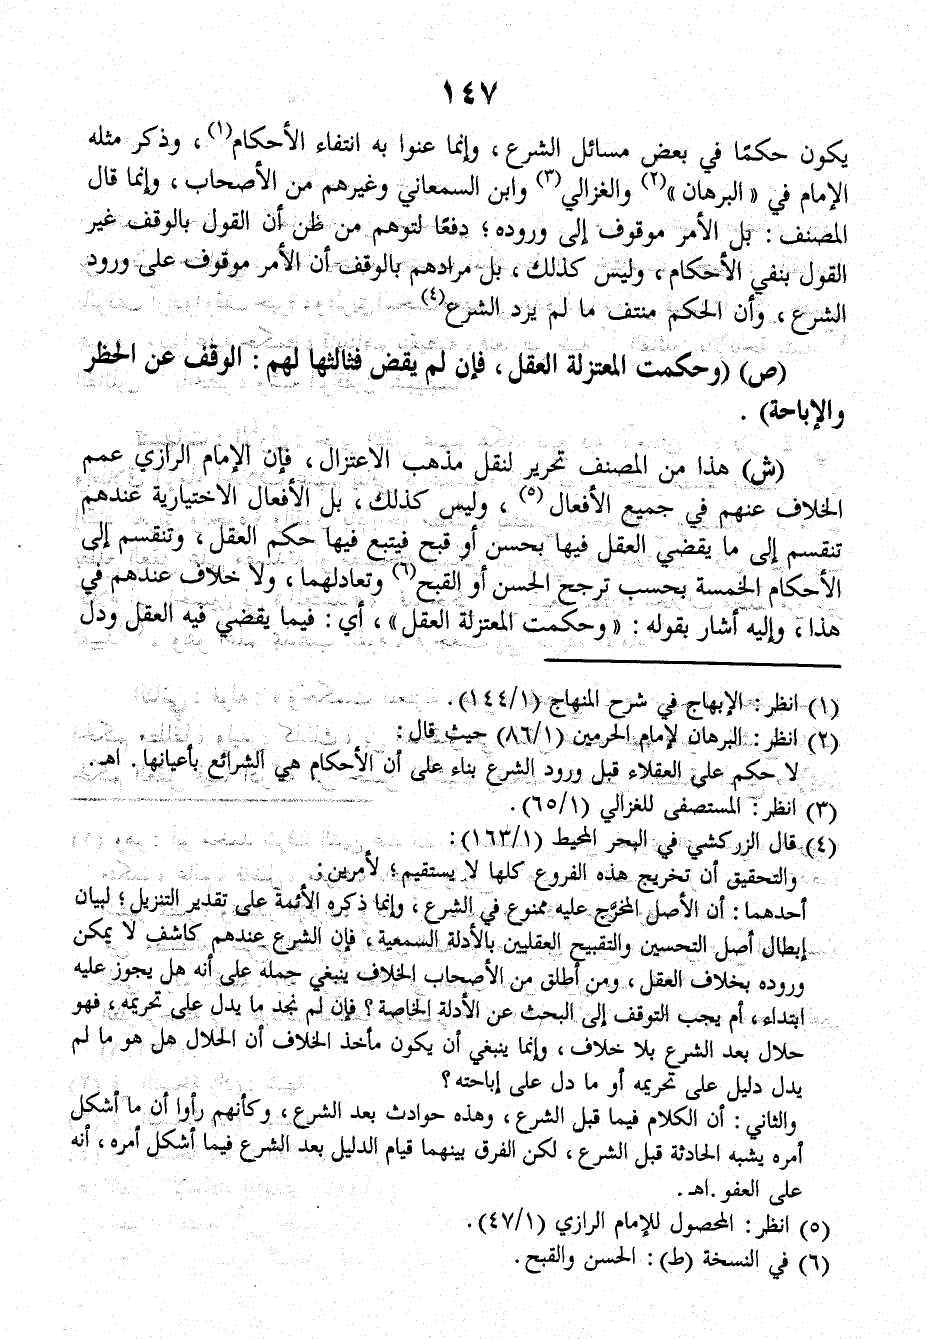 ١٤٧
يكون حكمًا في بعض مسائل الشرع، وإنما عنوا به انتفاء الأحكام(١)، وذكر مثله
الإمام في «البرهان»(٢) والغزالي(٣) وابن السمعاني وغيرهم من الأصحاب، وإنما قال
المصنف: بل الأمر موقوف إلى وروده؛ دفعًا لتوهم من ظن أن القول بالوقف غير
القول بنفي الأحكام، وليس كذلك، بل مرادهم بالوقف أن الأمر موقوف على ورود
الشرع، وأن الحكم منتف ما لم يرد الشرع(٤)
(ص) (وحكمت المعتزلة العقل، فإن لم يقض فثالثها لهم: الوقف عن الحظر
والإباحة).
(ش) هذا من المصنف تحرير لنقل مذهب الاعتزال، فإن الإمام الرازي عمم
الخلاف عنهم في جميع الأفعال(٥)، وليس كذلك، بل الأفعال الاختيارية عندهم
تنقسم إلى ما يقضي العقل فيها بحسن أو قبح فيتبع فيها حكم العقل، وتنقسم إلى
الأحكام الخمسة بحسب ترجح الحسن أو القبح(٦) وتعادلهما، ولا خلاف عندهم في
هذا، وإليه أشار بقوله: «وحكمت المعتزلة العقل»، أي: فيما يقضي فيه العقل ودل
(١) انظر: الإبهاج في شرح المنهاج (١/١٤٤).
(٢) انظر: البرهان لإمام الحرمين (٨٦/١) حيث قال:
لا حكم على العقلاء قبل ورود الشرع بناء على أن الأحكام هي الشرائع بأعيانها. اهـ.
(٣) انظر: المستصفى للغزالي (٦٥/١).
(٤) قال الزركشي في البحر المحيط (١٦٣/١):
والتحقيق أن تخريج هذه الفروع كلها لا يستقيم؛ لأمرين:
أحدهما: أن الأصل المخرَّج عليه ممنوع في الشرع، وإنما ذكره الأئمة على تقدير التنزيل؛ لبيان
إبطال أصل التحسين والتقبيح العقليين بالأدلة السمعية، فإن الشرع عندهم كاشف لا يمكن
وروده بخلاف العقل، ومن أطلق من الأصحاب الخلاف ينبغي حمله على أنه هل يجوز عليه
ابتداء، أم يجب التوقف إلى البحث عن الأدلة الخاصة؟ فإن لم نجد ما يدل على تحريمه، فهو
حلال بعد الشرع بلا خلاف، وإنما ينبغي أن يكون مأخذ الخلاف أن الحلال هل هو ما لم
يدل دليل على تحريمه أو ما دل على إباحته؟
والثاني: أن الكلام فيما قبل الشرع، وهذه حوادث بعد الشرع، وكأنهم رأوا أن ما أشكل
أمره يشبه الحادثة قبل الشرع، لكن الفرق بينهما قيام الدليل بعد الشرع فيما أشكل أمره، أنه
على العفو.اهـ.
(٥) انظر: المحصول للإمام الرازي (٤٧/١).
(٦) في النسخة (ط): الحسن والقبح.